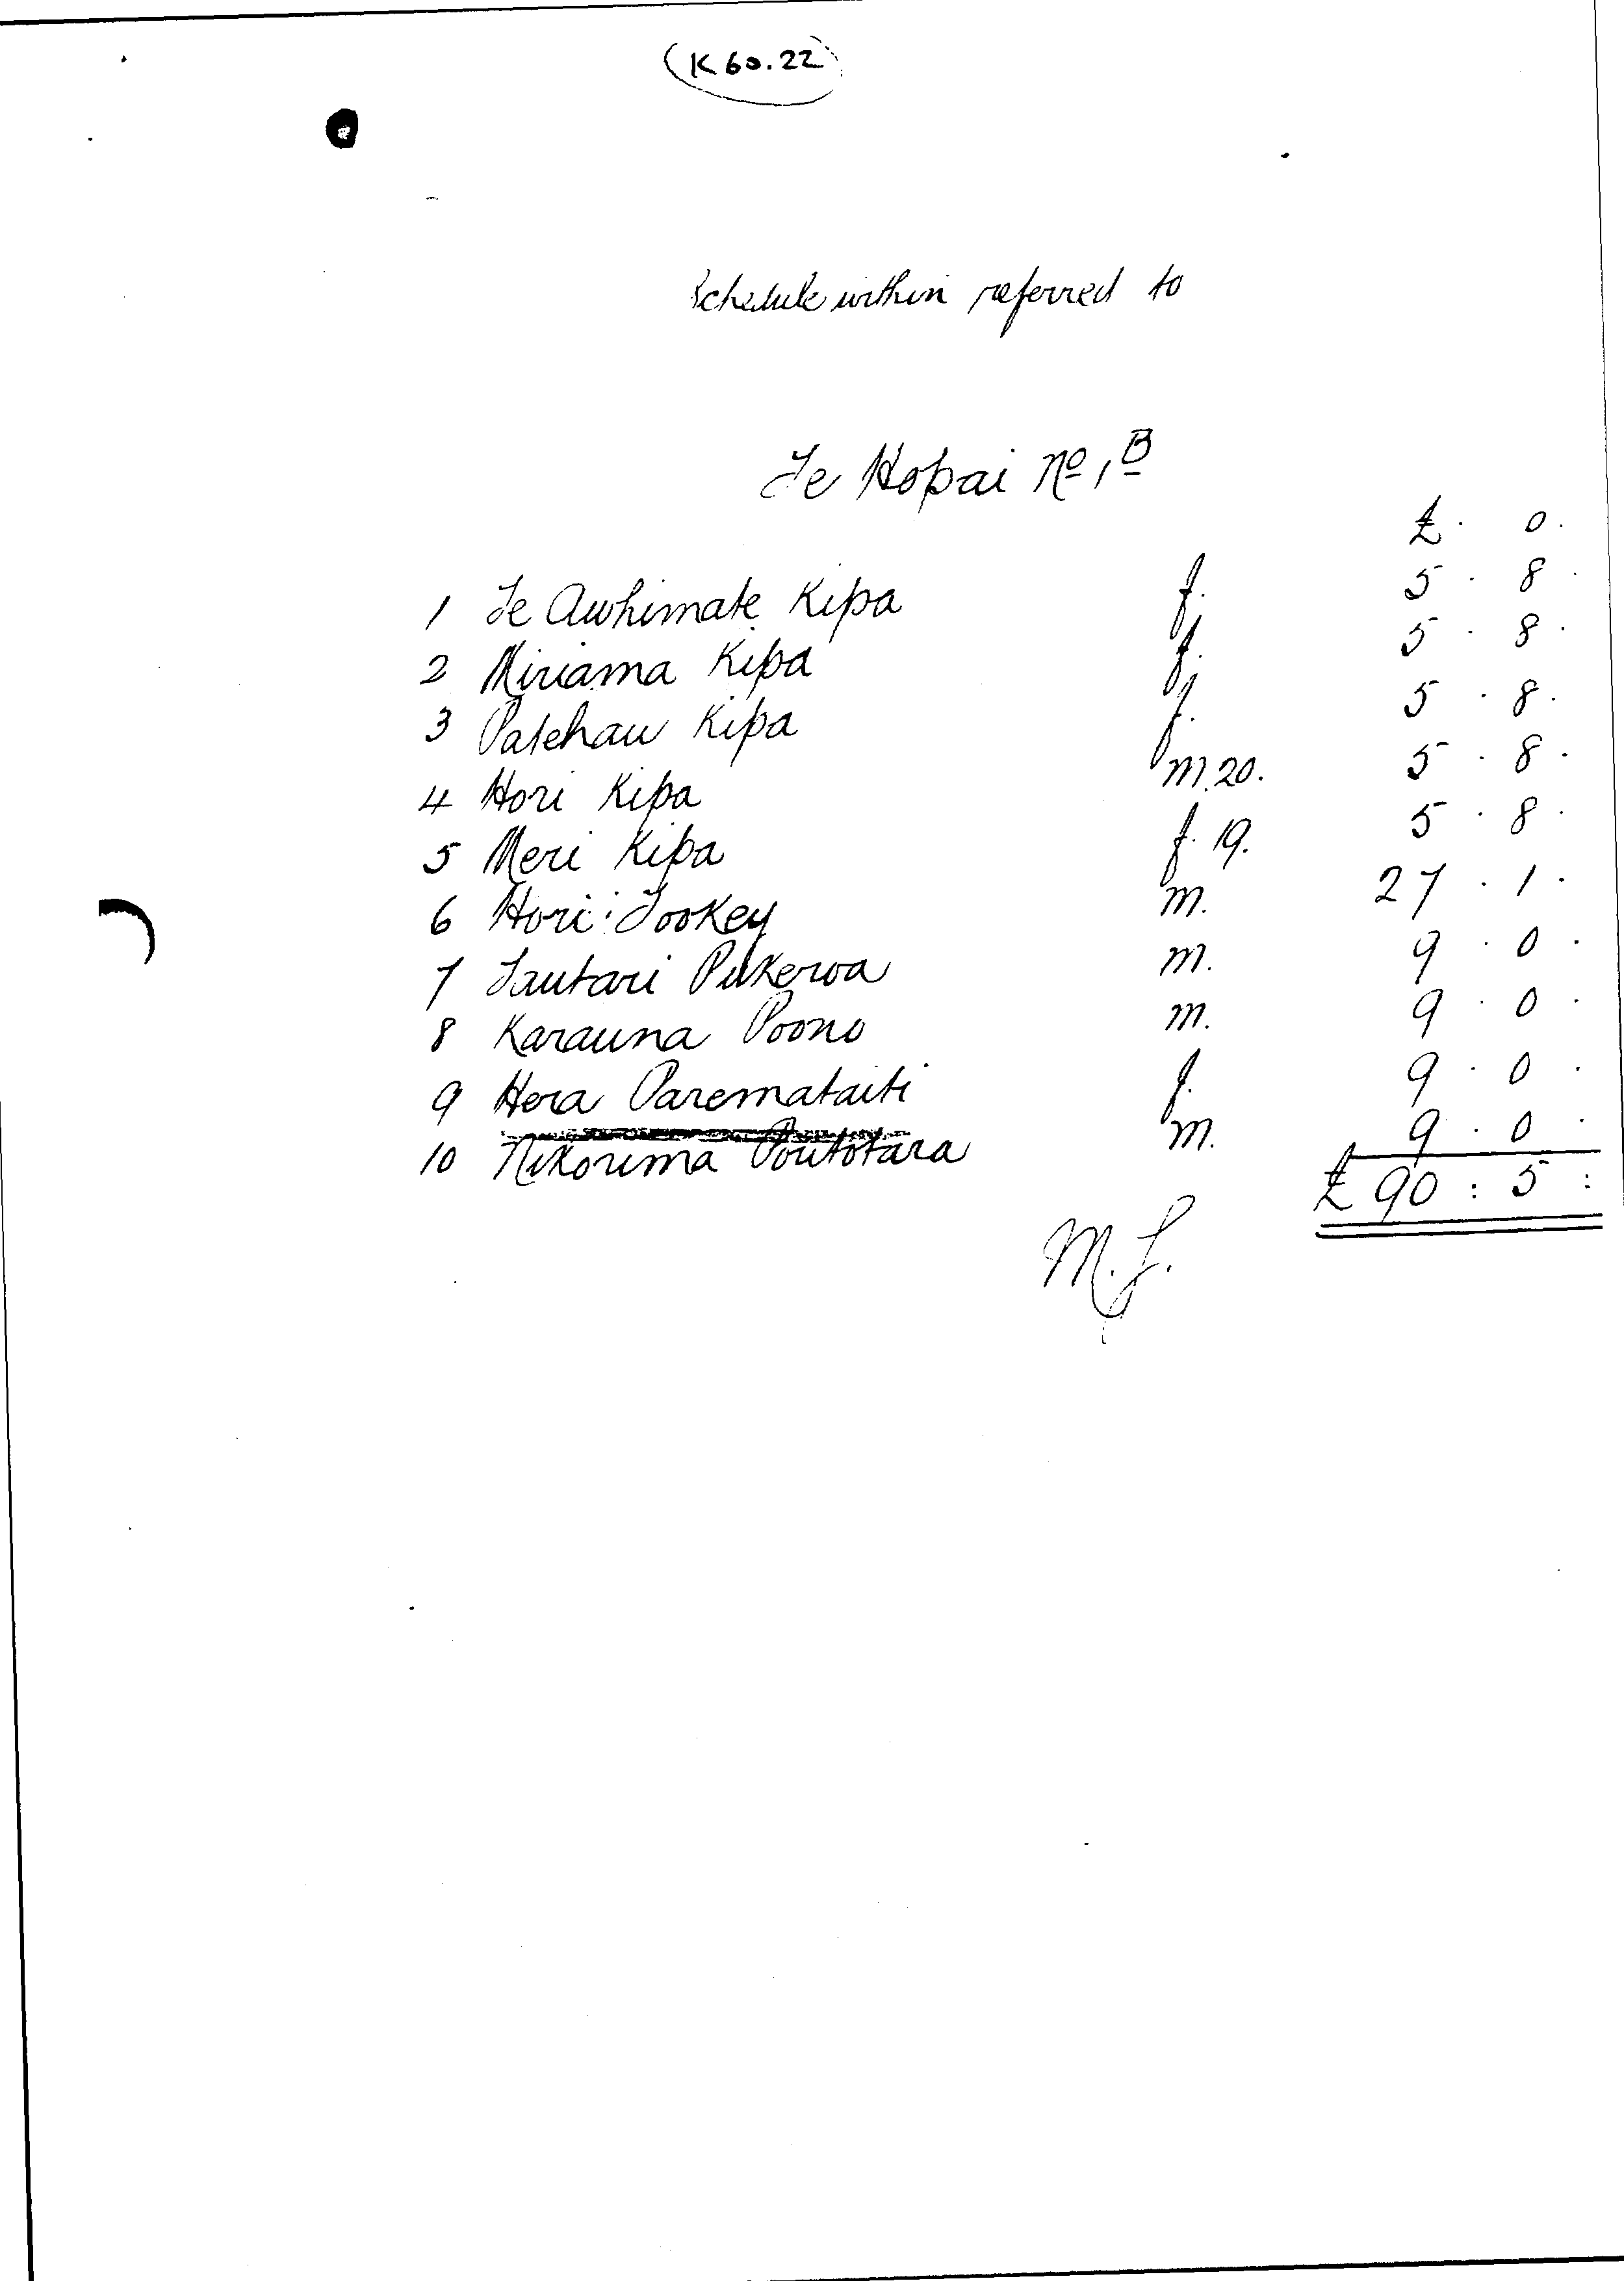 (K 60.22)
Schedule within referred to
Te Hopai No 1B
£ . 0 .
1 Te Awhimate Kipa f. 5 . 8 .
2 Miriama Kipa f. 5 . 8 .
3 Patehau Kipa f. 5 . 8 .
4 Hori Kipa m. 20. 5 . 8 .
5 Meri Kipa f. 19. 5 . 8 .
6 Hori Tookey m. 27 . 1 .
7 Tautari Pukeroa m. 9 . 0 .
8 Karauna Poono m. 9 . 0 .
9 Hera Paremataiti f. 9 . 0 .
10 Nikorima Poutotara m. 9 . 0 .
£ 90 : 5 :